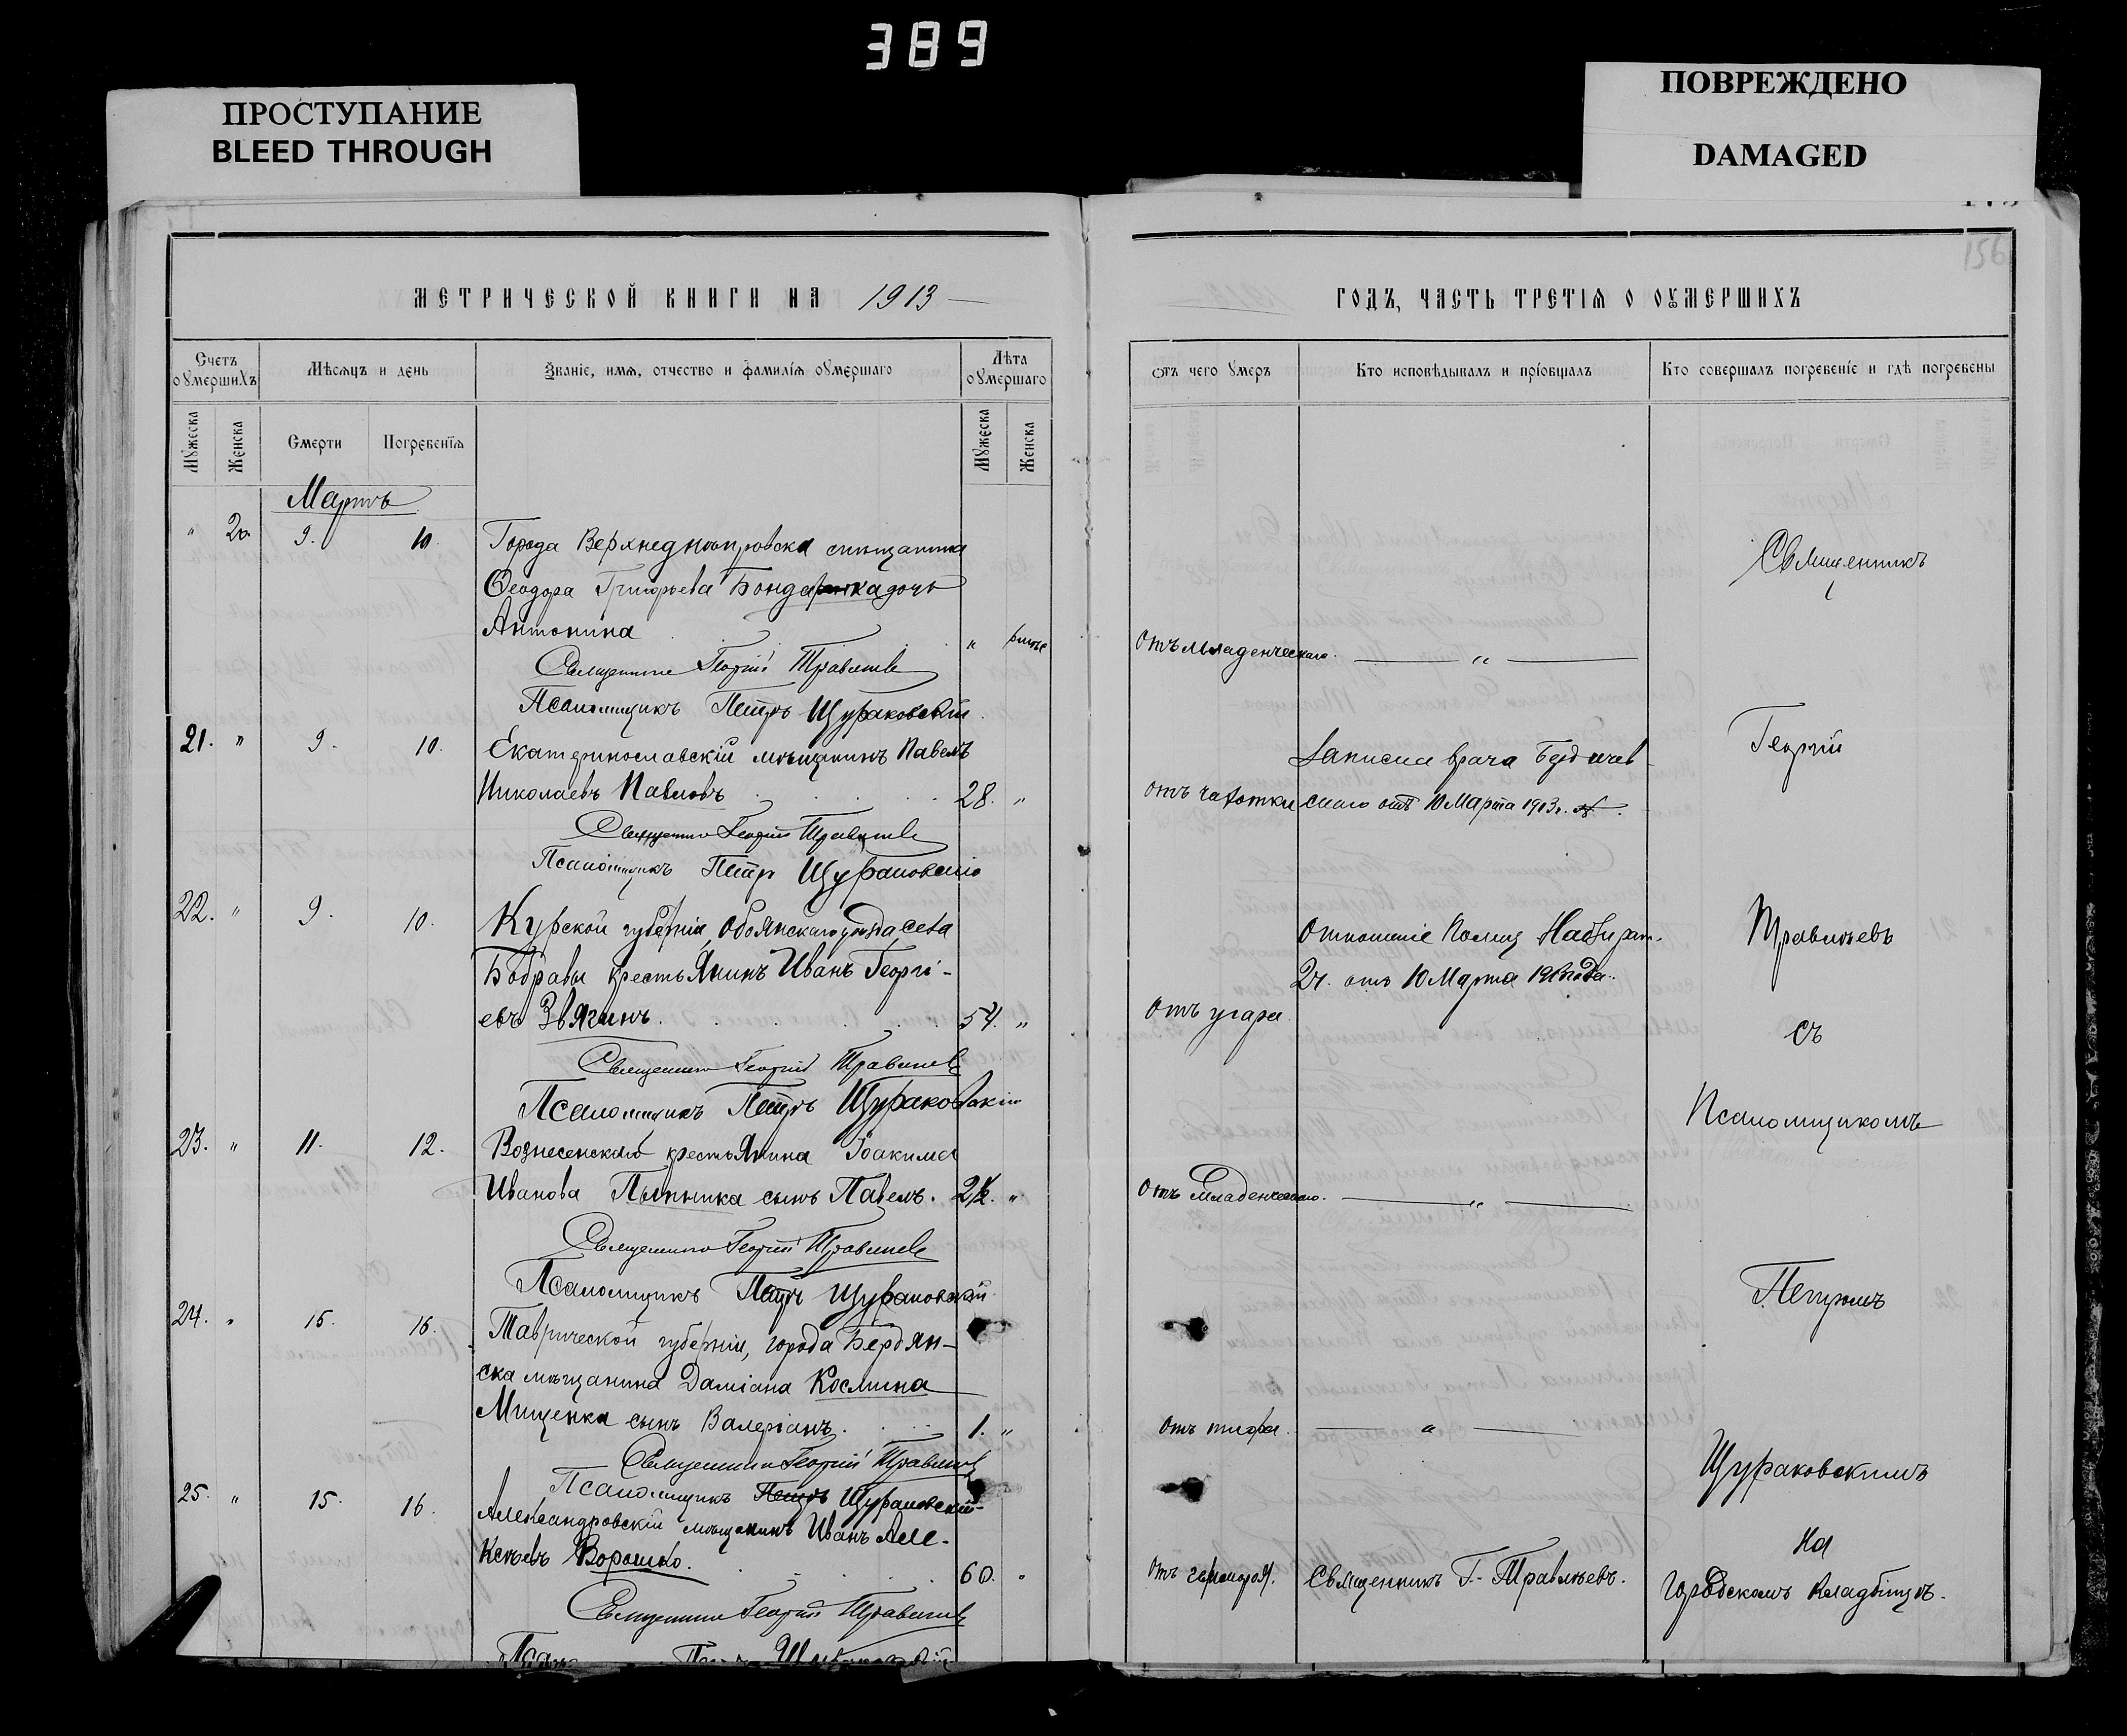 389
ПРОСТУПАНИЕ
BLEED THROUGH
ПОВРЕЖДЕНО
DAMAGED
156
МЕТРИЧЕСКОЙ КНИГИ НА 1913
ГОДЪ, ЧАСТЬ ТРЕТІЯ О ОУМЕРШИХЪ
Счетъ оумершихъ
Мѣсяцъ и день
Званіе, имя, отчество и фамилія оумершаго
Лѣта оумершаго
Отъ чего умеръ
Кто исповѣдывалъ и пріобщалъ
Кто совершалъ погребеніе и гдѣ погребены
Мужеска
Женска
Смерти
Погребенія
Мужеска
Женска
Мартъ
" 20. 9. 10. Города Верхнеднѣпровска мѣщанина
Ѳеодора Григорьева Бондаренка дочь
Антонина "
Отъ младенческаго. "
Священникъ Георгій Травлѣевъ
Псаломщикъ Петръ Щураковскій
21. " 9. 10. Екатеринославскій мѣщанинъ Павелъ
Николаевъ Павловъ 28. "
Отъ чахотки
Записка врача
скаго отъ 10 Марта 1913г.
Священникъ Георгій Травлѣевъ
Псаломщикъ Петръ Щураковскій
22. " 9. 10. Курской губерніи, Обоянскаго уѣзда села
Бобравы крестьянинъ Иванъ Георгі-
евъ Звягинъ. 54. "
Отъ угара
Отношеніе Полиц. Надзират.
2ч. отъ 10 Марта
Священникъ Георгій Травлѣевъ
Псаломщикъ Петръ Щураковскій
23. " 11. 12. Вознесенскаго крестьянина Іоакима
Иванова сынъ Павелъ. 2½. "
Отъ Младенческаго. "
Священникъ Георгій Травлѣевъ
Псаломщикъ Петръ Щураковскій
24. " 15. 16. Таврической губерніи, города Бердян-
ска мѣщанина Даміана Космина
Мищенка сынъ Валеріанъ. 1. "
Отъ тифа. "
Священникъ Георгій Травлѣевъ
Псаломщикъ Петръ Щураковскій
25. " 15. 16. Александровскій мѣщанинъ Иванъ Але-
ксѣевъ Ворошко. 60. "
Отъ геморроя. Священникъ Г. Травлѣевъ.
Священникъ Георгій Травлѣевъ
Священникъ
Георгій
Травлѣевъ
съ
Псаломщикомъ
Петромъ
Щураковскимъ
на
городскомъ кладбищѣ.